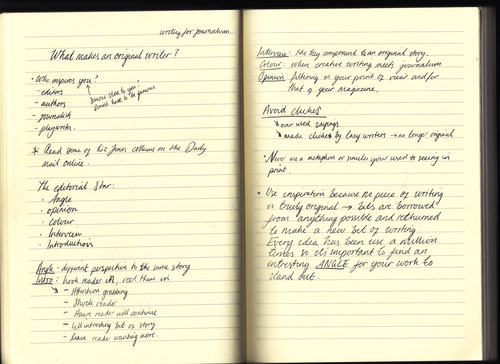 writing for journalism
What makes an original writer?
• Who inspires you?
- editors
- authors
- journalist
- playwrites.
someone close to you?
Doesnt have to be famous
* Read some of Liz Jones collums on the Daily
mail online.
The editorial Star:
• Angle
• opinion
• colour
• Interview
• Introductions
Angle - different perspective to the same story
Intro: hook reader in, reel them in
- Attention grabbing
- Shock reader
- Assure reader will continue
- tell intresting bit of story
- leave reader wanting more.
Interview: The key component to an original story.
Colour: when creative writing meets journalism
Opinion: filtering in your point of view and/or
that of your magazine.
Avoid cliches
over used sayings
made cliches by lazy writers → no longer original
• Never use a metaphor or similie your used to seeing in
print.
• Use inspiration because no piece of writing
is truly original → bits are borrowed
from anything possible and rethurned
to make a new bit of writing
Every idea has been use a million
times so its important to find an
intresting ANGLE for your work to
stand out.